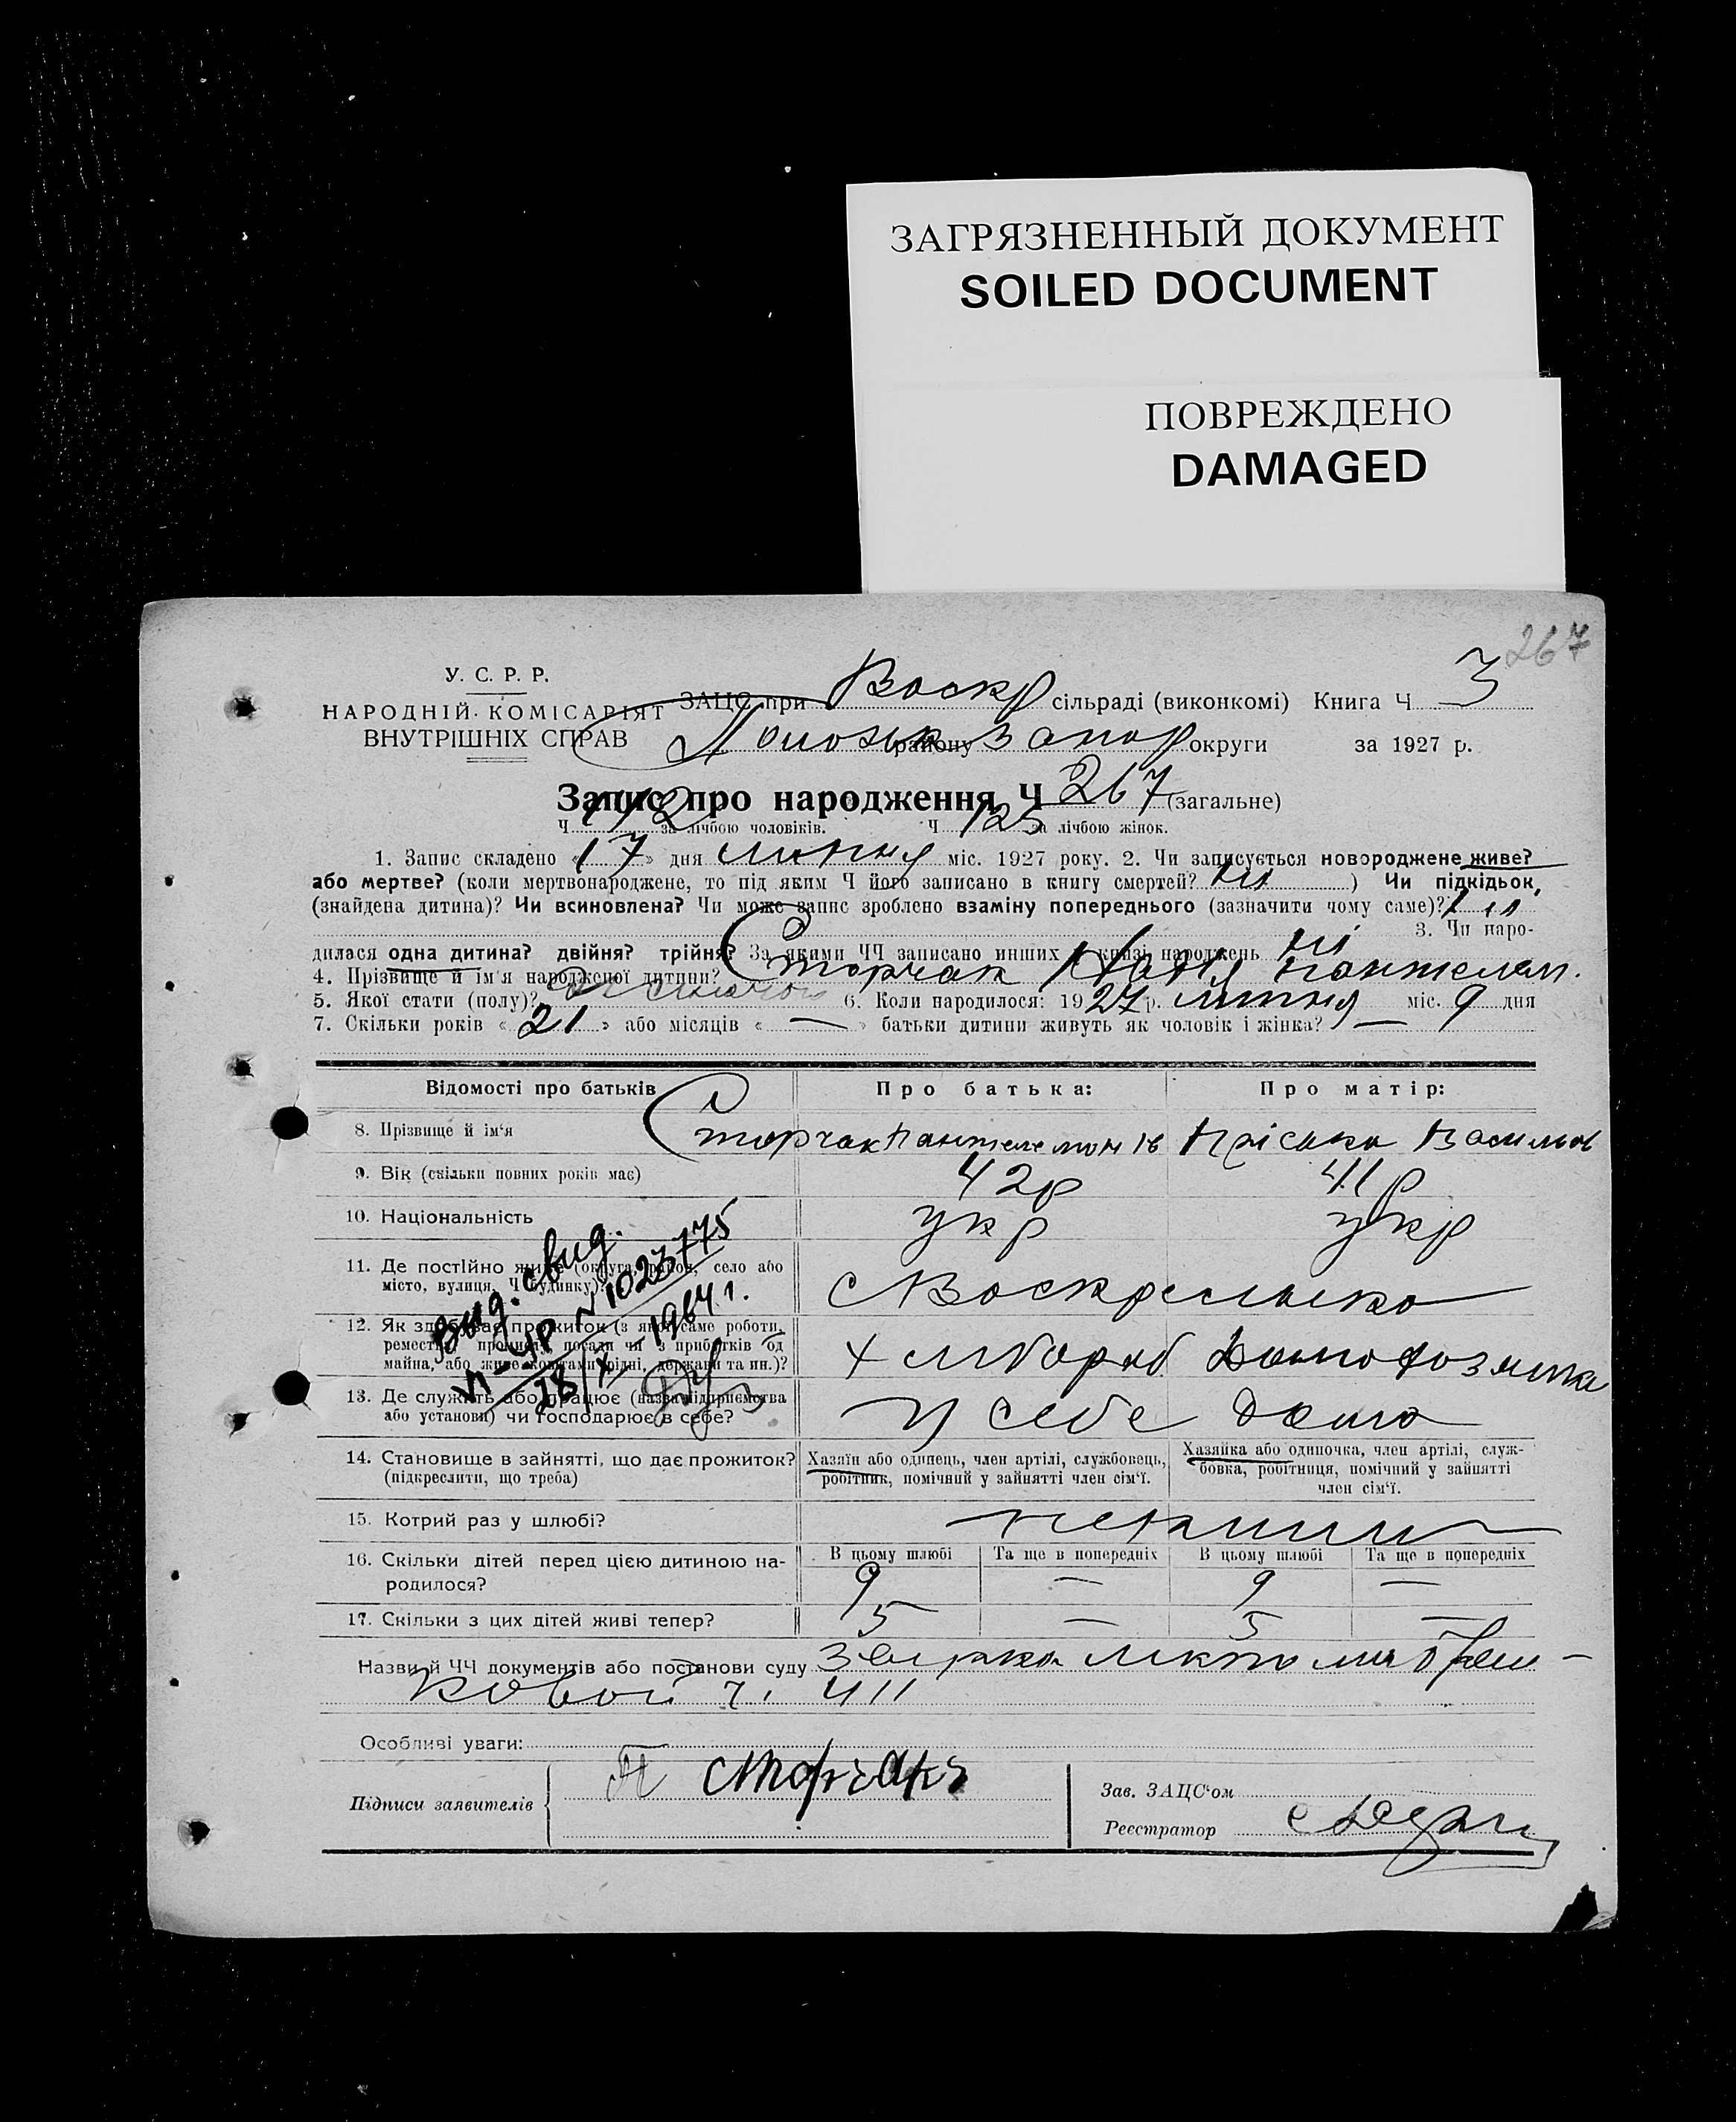 ЗАГРЯЗНЕННЫЙ ДОКУМЕНТ
SOILED DOCUMENT
ПОВРЕЖДЕНО
DAMAGED
267
У. С. Р. Р.
НАРОДНІЙ КОМІСАРІЯТ
ВНУТРІШНІХ СПРАВ
ЗАЦС при Воскр сільраді (виконкомі) Книга Ч 3
району Запор округи за 1927 р.
Запис про народження Ч 267 (загальне)
Ч 142 за лічбою чоловіків. Ч 125 за лічбою жінок.
1. Запис складено «17» дня липня міс. 1927 року. 2. Чи записується новороджене живе?
або мертве? (коли мертвонароджене, то під яким Ч його записано в книгу смертей? ні ) Чи підкідьок,
(знайдена дитина)? Чи всиновлена? Чи може запис зроблено взаміну попереднього (зазначити чому саме)? ні
3. Чи наро-
дилася одна дитина? двійня? трійня? За якими ЧЧ записано инших в книзі народжень ні
4. Прізвище й ім'я народженої дитини? Сторчак Надія Пантелем.
5. Якої стати (полу)? 6. Коли народилося: 1927 р. липня міс. 9 дня
7. Скільки років «21» або місяців «—» батьки дитини живуть як чоловік і жінка? —
Відомості про батьків
Про батька:
Про матір:
8. Прізвище й ім'я Сторчак Пантелемон Ів Пріська Васильов
9. Вік (скільки повних років має) 42р 41р
10. Національність укр укр
11. Де постійно живе (округа, район, село або
місто, вулиця, Ч будинку)? с Воскресенка
12. Як здобуває прожиток (з якої саме роботи,
ремества, промислу, посади чи з прибутків од
майна, або живе коштами рідні, держави та ин.)? Хлібороб Домогозяйка
13. Де служить або працює (назва підприємства
або установи) чи господарює в себе? У себе дома
Выд. свид.
VI-ЧР N 1023775
28/X-1964 г.
14. Становище в зайнятті, що дає прожиток?
(підкреслити, що треба)
Хазяїн або одинець, член артілі, службовець,
робітник, помічний у зайнятті член сім'ї.
Хазяйка або одиночка, член артілі, служ-
бовка, робітниця, помічний у зайнятті
член сім'ї.
15. Котрий раз у шлюбі?
16. Скільки дітей перед цією дитиною на-
родилося?
В цьому шлюбі Та ще в попередніх В цьому шлюбі Та ще в попередніх
9 — 9 —
17. Скільки з цих дітей живі тепер? 5 — 5 —
Назви й ЧЧ документів або постанови суду
ч. 411
Особливі уваги:
Підписи заявителів
П Сторчакъ
Зав. ЗАЦС'ом
Реєстратор